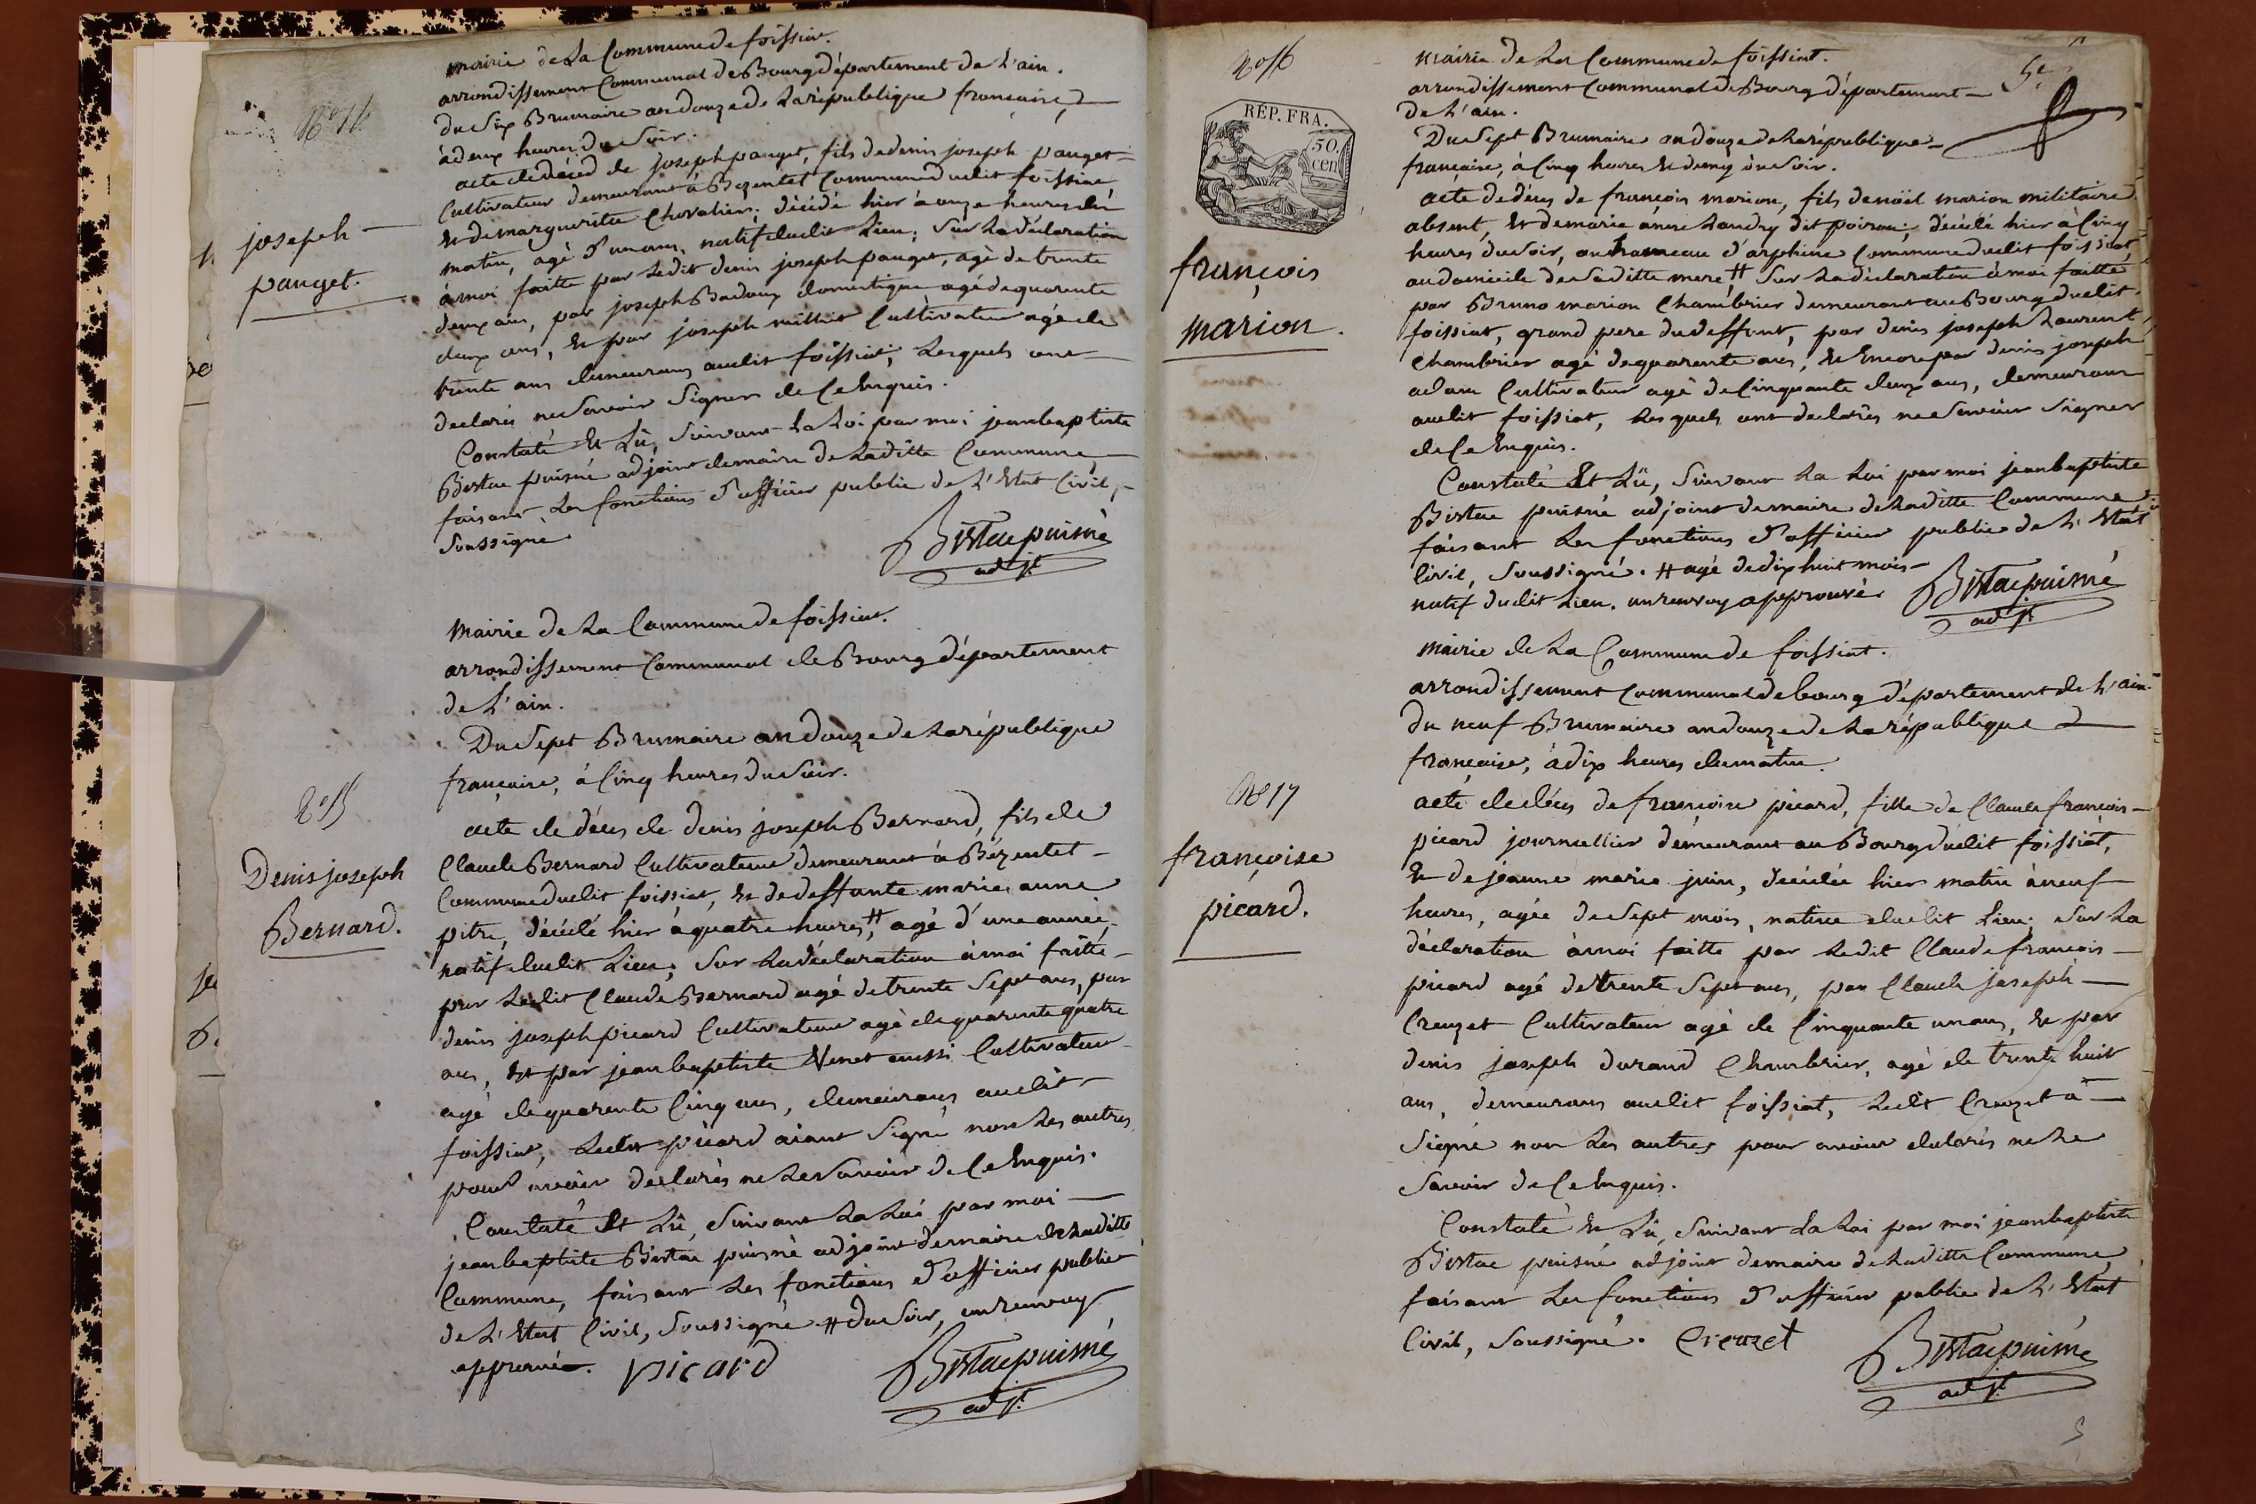 N° 14
joseph
pauget.
mairie de La Commune de foissiat.
arrondissement Communal de Bourg département de L'ain.
du Six Brumaire an douze de La république française,
à deux heures du Soir.
acte de décéd de joseph pauget, fils de denis joseph pauget
Cultivateur demeurant à Bézentet Commune dudit foissiat
et de marguerite Chevalier; décédé hier à onze heures du
matin, agé d'un an, natif dudit Lieu; Sur La déclaration
à moi faitte par Ledit denis joseph pauget, agé de trente
deux ans, par joseph Badoux domestique agé de quarente
deux ans, et par joseph millet Cultivateur agé de
trente ans demeurans audit foissiat; Lesquels ont
declarés ne Savoir Signer de Ce Enquis.
Constaté et Lû, Suivant La Loi par moi jean baptiste
Bistac puisné adjoint demaire de Laditte Commune
faisant Les fonctions d'officier public de L'Etat Civil,
Soussigné
Bistac puisné
adjt.
N° 15
Denis joseph
Bernard.
Mairie de La Commune de foissiat.
arrondissement Communal de Bourg département
de L'ain.
Du Sept Brumaire an douze de La république
française, à Cinq heures du Soir.
acte de décés de denis joseph Bernard, fils de
Claude Bernard Cultivateur demeurant à Bézentet
Commune dudit foissiat, et de deffunte marie anne
pitre, décédé hier à quatre heures, # agé d'une année,
natif dudit Lieu; Sur La déclaration à moi faitte
par Ledit Claude Bernard agé de trente Sept ans, par
denis joseph picard Cultivateur agé de quarente quatre
ans, et par jean baptiste Venet aussi Cultivateur
agé de quarente Cinq ans, demeurans audit
foissiat, Ledit picard aiant Signé non Les autres
pour avoir declarés ne Le Savoir de Ce Enquis.
Constaté et Lû, Suivant La Loi par moi
jean baptiste Bistac puisné adjoint demaire de Laditte
Commune, faisant Les fonctions d'officier public
de L'Etat Civil, Soussigné # du Soir, un renvoy
approuvé. picard
Bistac puisné
adjt.
N° 16
RÉP. FRA.
50
cen
françois
marion.
5e
mairie de La Commune de foissiat.
arrondissement Communal de Bourg département
de L'ain.
Du Sept Brumaire an douze de La république
française, à Cinq heures et demy du Soir.
acte de décés de françois marion, fils de noël marion militaire
absent, et de marie anne Landry dit poiron; décédé hier à Cinq
heures du Soir, au hameau d'arphine Commune dudit foissiat,
au domicile de Saditte mere # Sur La déclaration à moi faitte
par Bruno marion Chambrier demeurant au Bourg dudit
foissiat, grand pere du deffunt, par denis joseph Laurent
Chambrier agé de quarente ans, et Encore par denis joseph
adam Cultivateur agé de Cinquante deux ans, demeurans
audit foissiat, Lesquels ont declarés ne Savoir Signer
de Ce Enquis.
Constaté Et Lû, Suivant La Loi par moi jean baptiste
Bistac puisné adjoint demaire de Laditte Commune
faisant Les fonctions d'officier public de L'Etat
Civil, Soussigné. # agé de dix huit mois
natif dudit Lieu. un renvoy approuvé
Bistac puisné
adjt
N° 17
françoise
picard.
mairie de La Commune de foissiat.
arrondissement Communal de bourg département de L'ain.
du neuf Brumaire an douze de La république
française, à dix heures du matin.
acte de décés de françoise picard, fille de Claude françois
picard journallier demeurant au Bourg dudit foissiat,
et de jeanne marie juin, décédée hier matin à neuf
heures, agée de Sept mois, native dudit Lieu; Sur La
déclaration à moi faitte par Ledit Claude francois
picard agé de trente Sept ans, par Claude joseph
Creuzet Cultivateur agé de Cinquante un ans, et par
denis joseph durand Chambrier, agé de trente huit
ans, demeurans audit foissiat, Ledit Creuzet a
Signé non Les autres pour avoir declarés ne Le
Savoir de Ce Enquis.
Constaté et Lû, Suivant La Loi par moi jean baptiste
Bistac puisné adjoint demaire de Laditte Commune,
faisant Les fonctions d'officier public de L'Etat
Civil, Soussigné. Creuzet
Bistac puisné
adjt